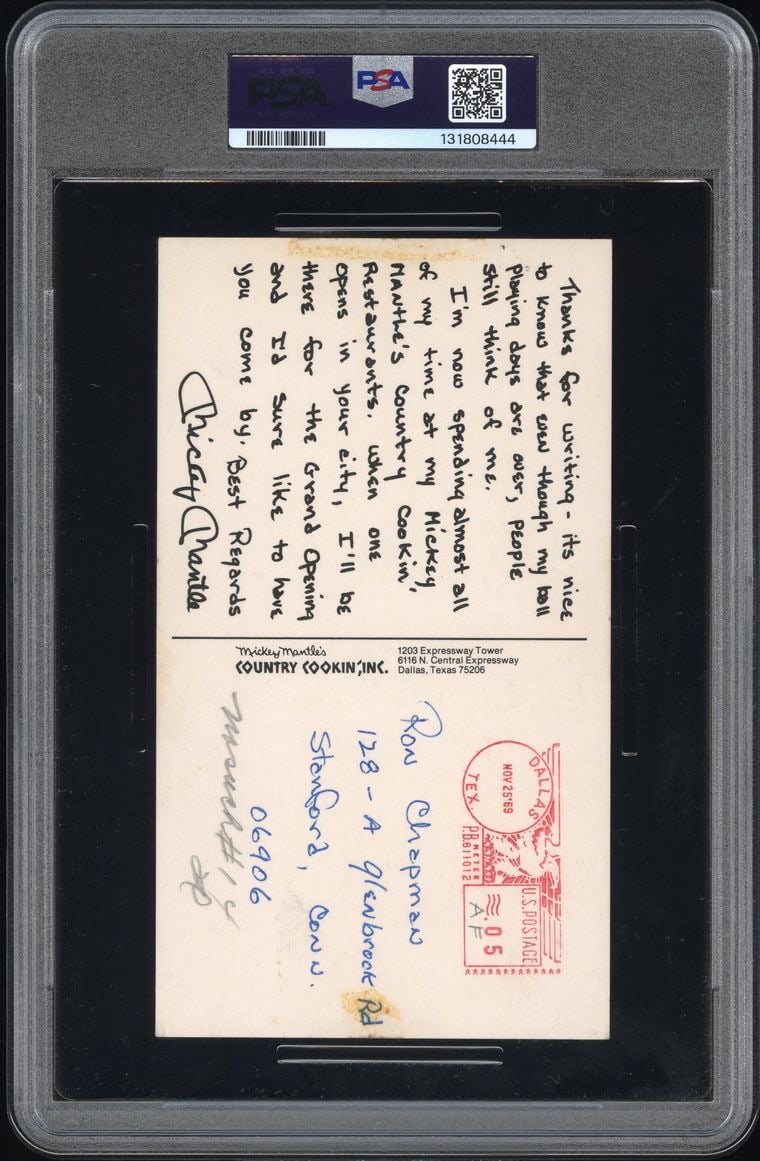 PSA
PSA
131808444
Thanks for writing - its nice
to know that even though my ball
playing days are over, people
still think of me.
I'm now spending almost all
of my time at my Mickey
Mantle's Country Cookin'
Restaurants. When one
opens in your city, I'll be
there for the Grand Opening
and I'd sure like to have
you come by. Best Regards
Mickey Mantle
Mickey Mantle's
COUNTRY COOKIN', INC.
1203 Expressway Tower
6116 N. Central Expressway
Dallas, Texas 75206
DALLAS
TEX.
NOV 25 '69
P.B. METER
811012
U.S. POSTAGE
.05
AF
Ron Chapman
128 - A Glenbrook Rd
Stamford, Conn.
06906